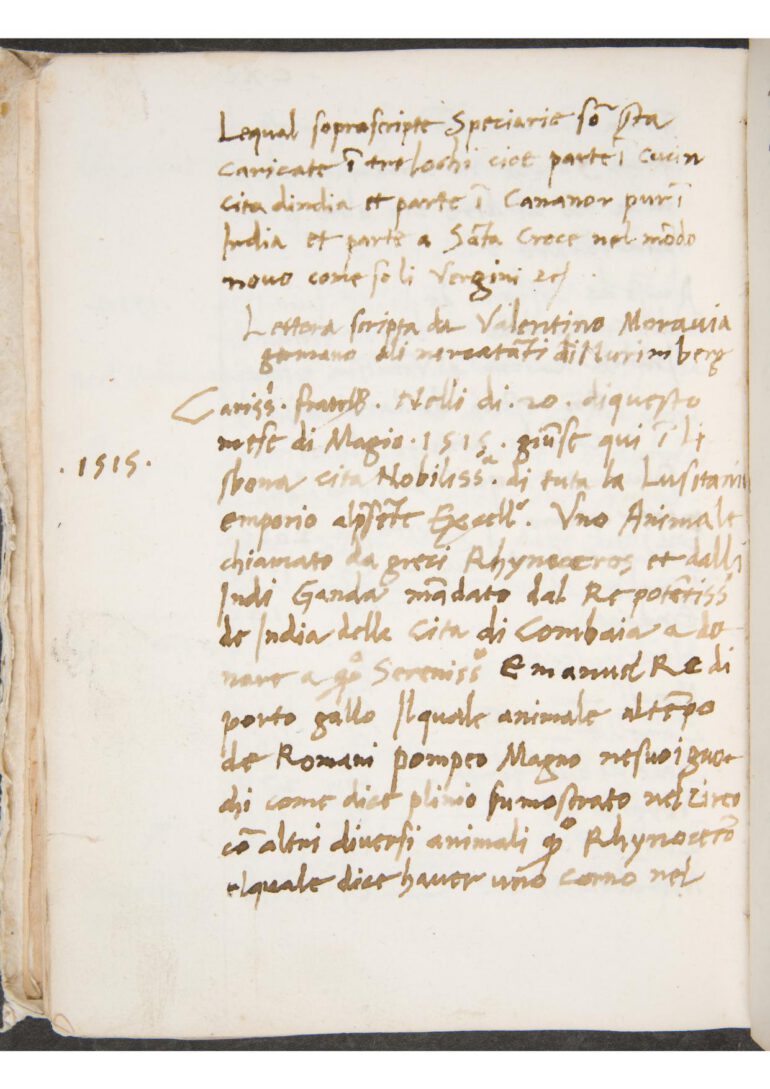 Lequal soprascripte Speciarie sõ sta
caricate ĩ tre lochi cioe parte ĩ Cucin
cita dindia et parte ĩ Cananor pur ĩ
India et parte a Sãta Croce nel mõdo
novo come so li Vergini
Lettera scripta da Valentino Moravia
germano ali mercatãti di Nurimberg
Cariss.ⁱ fratelli. Nelli di .20. diquesto
mese di Magio .1515. giũse qui ĩ Li
.1515.
sbona cita Nobiliss.ᵃ di tuta la Lusitania
emporio alpsẽte Excell.ᵒ Uno Animale
chiamato da greci Rhynoceros et dalli
Indi Ganda mãdato dal Re potẽtissᵒ
de India della Cita di Combaia a do
nare a qᵒ Sereniss.ᵒ Emanuel Re di
porto gallo Ilquale animale al tẽpo
de Romani pompeo Magno ne suoi guo
chi come dice plinio fu mostrato nel zirco
cõ altri diversi animali qᵒ Rhynocerõ
elquale dice haver uno corno nel